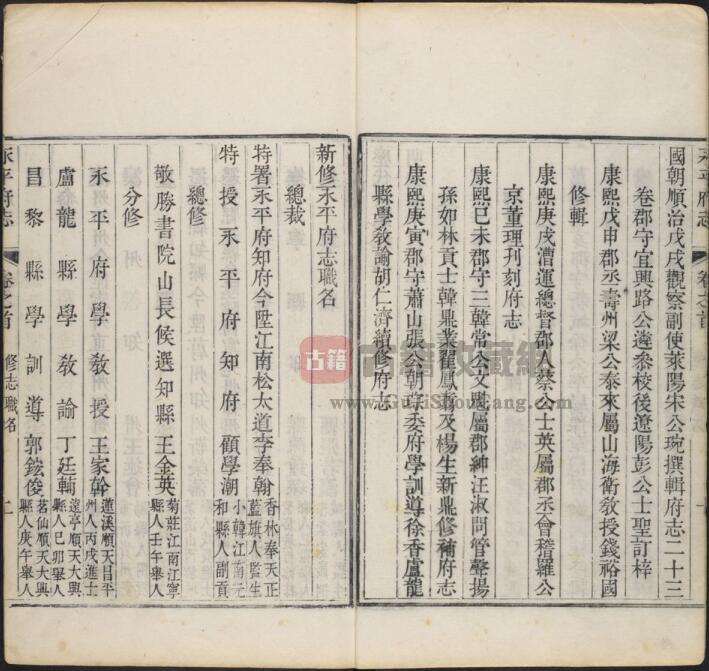 國朝順治戊戌觀察副使萊陽宋公琬撰輯府志二十三
卷郡守宜興路公遴叅校後遼陽彭公士聖訂梓
康熙戊申郡丞壽州梁公泰來屬山海衛敎授錢裕國
修輯
康熙庚戌漕運總督郡人蔡公士英屬郡丞會稽羅公
京董理刋刻府志
康熙己未郡守三韓常公文魁屬郡紳汪淑問管聲揚
孫如林貢士韓鼎業翟鳳翥及楊生新鼎修補府志
康熙庚寅郡守蕭山張公朝琮委府學訓導徐香盧龍
縣學敎諭胡仁濟續修府志
永平府志
卷之首
新修永平府志職名
總裁
特署永平府知府今陞江南松太道李奉翰
香林奉天正
藍旗人監生
特授永平府知府顧學潮
小韓江南元
和縣人副貢
總修
敬勝書院山長候選知縣王金英
菊莊江南江寧
縣人壬午舉人
分修
永平府學敎授王家幹
蓮溪順天昌平
州人丙戌進士
盧龍縣學敎諭丁廷輔
遠亭順天大興
縣人己卯舉人
昌黎縣學訓導郭鉉俊
茗仙順天大興
縣人庚午舉人
永平府志
卷之首
修志職名
古籍
www.GuJiShouCang.com